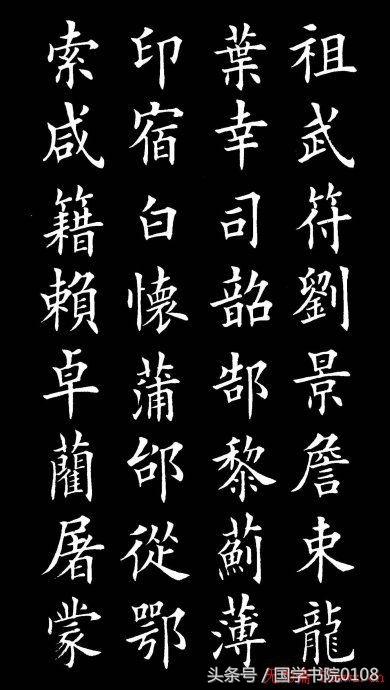 祖武符劉景詹束龍
葉幸司韶郜黎薊薄
印宿白懷蒲邰從鄂
索咸籍賴卓藺屠蒙
头条号 / 国学书院0108